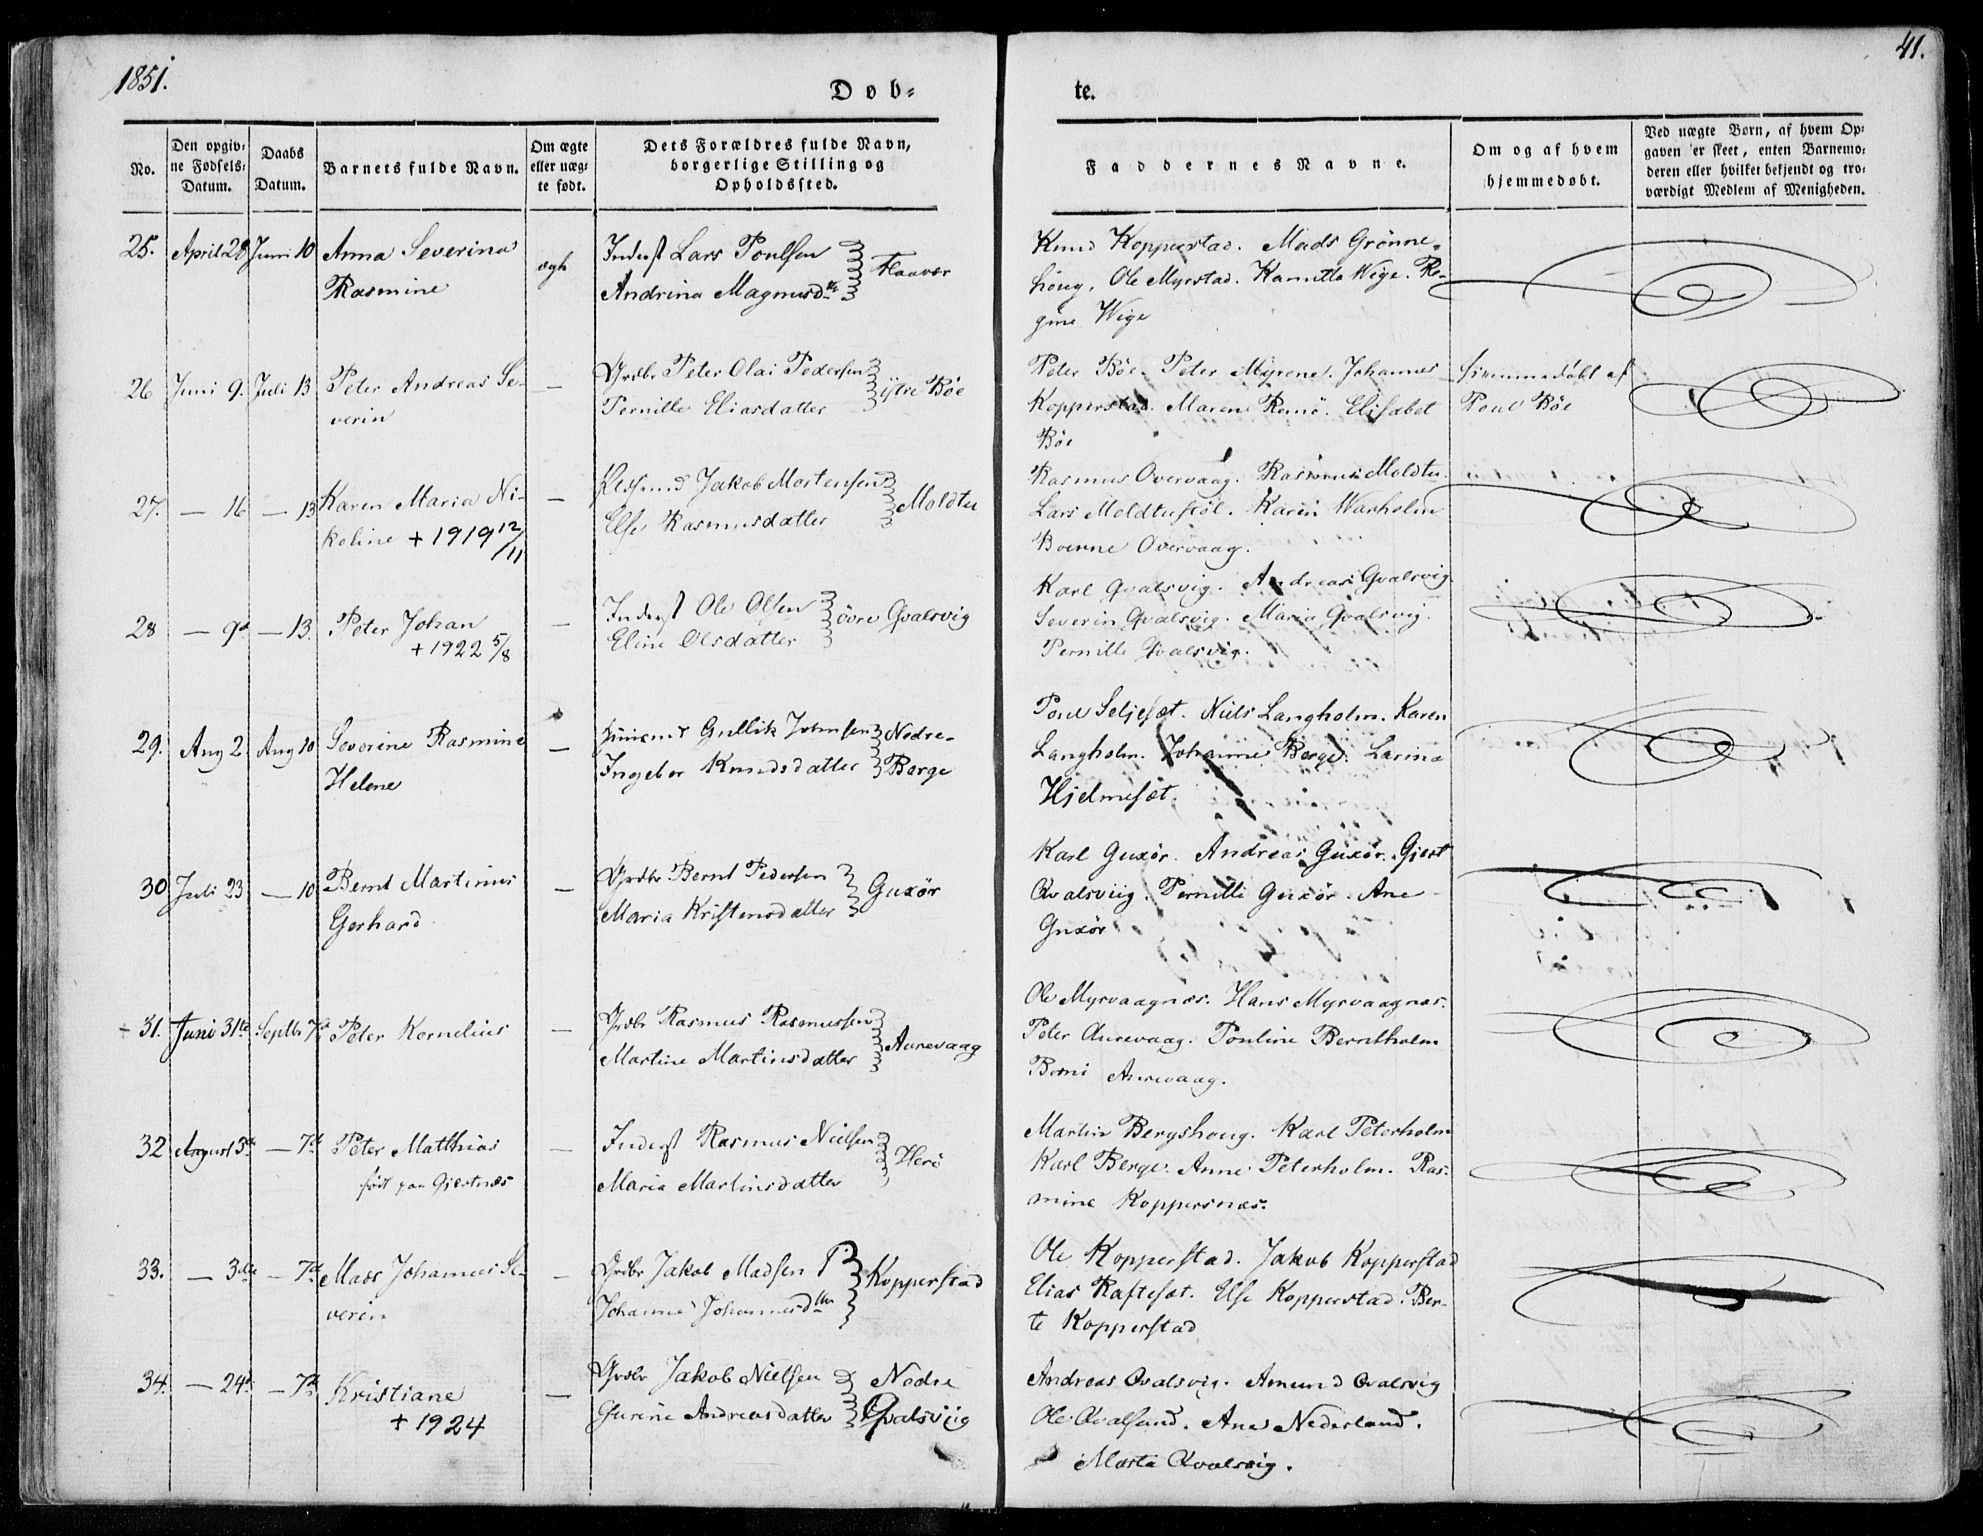 1851.
41.
Døb-
te.
No.
Den opgiv-
ne Fødsels-
Datum.
Daabs
Datum.
Barnets fulde Navn.
Om ægte
eller uæg-
te født.
Dets Forældres fulde Navn,
borgerlige Stilling og
Opholdssted.
Faddernes Navne.
Om og af hvem
hjemmedøbt.
Ved uægte Børn, af hvem Op-
gaven er skeet, enten Barnemo-
deren eller hvilket bekjendt og tro-
værdigt Medlem af Menigheden.
25. April 28 Juni 10 Anna Severina
Rasmine
ægte
Inderst Lars Poulsen
Andrina Magnusd.tr
Flaavær
Knud Kopperstad. Mads Grønne-
houg. Ole Myrstad. Kanutta Wige. Re-
gine Wige
26 Juni 9. Juli 13 Peter Andreas Se-
verin
—
Grdbr Peter Olai Pedersen
Pernille Eliasdatter
ystre Bøe
Peter Bøe. Peter Myrene. Johannes
Kopperstad. Maren Remö. Elisabet
Bøe
hjemmedøbt af
Poul Bøe
27. — 16 — 13 Karen Maria Ni-
koline + 1919 12/11
—
Jakob Mortensen
Else Rasmusdatter
Moldtu
Rasmus Overvaag. Rasmus Moldtu.
Lars Moldtustöl. Karen Warholm
Overvaag.
28 — 9d — 13. Peter Johan
+ 1922 5/8
—
Inderst Ole Olsen
Eline Olsdatter
övre Qvalsvig
Karl Qvalsvig. Andreas Qvalsvig
Severin Qvalsvig. Maria Qvalsvig.
Pernille Qvalsvig.
29. Aug 2. Aug 10 Severine Rasmine
Helene
—
Gullik Johnsen
Ingebor Knudsdatter
Nedre-
Berge
Poul Seljesæt. Niels Langholm. Karen
Langholm. Johanne Berge. Larina
Hjelmesæt.
30 Juli 23 — 10 Bernt Martinus
Gerhard
—
Grdbr Bernt Pedersen
Maria Kristensdatter
Guxör
Karl Guxör. Andreas Guxör. Gjert
Qvalsviig. Pernille Guxör. Ane
Guxör
+ 31. Juni 31te Septbr 7d Peter Kornelius
—
Grdbr Rasmus Rasmussen
Martine Martinsdatter
Aurevaag
Ole Myrvaagnæs. Hans Myrvaagnæs.
Peter Aurevaag. Pouline Berntholm
Aurevaag.
32 August 3de — 7d Peter Matthias
født paa Gjertnæs
—
Inderst Rasmus Nielsen
Maria Martinsdatter
Herö
Martin Bergshoug. Karl Peterholm
Karl Berge. Anne Peterholm. Ras-
mine Koppersnæs.
33. — 3de — 7d Mass Johannes Se-
verin
—
Grdbr Jakob Madsen
Johanne Johannesdtter
Kopperstad
Ole Kopperstad. Jakob Kopperstad
Elias Raftesæt. Else Kopperstad. Ber-
te Kopperstad
34. — 24d — 7d Kristiane
+ 1924
—
Grdbr Jakob Nielsen
Gurine Andreasdatter
Nedre
Qvalsviig
Andreas Qvalsvig. Amund Qvalsvig
Ole Qvalsund. Ane Nederland.
Marta Qvalsvig.